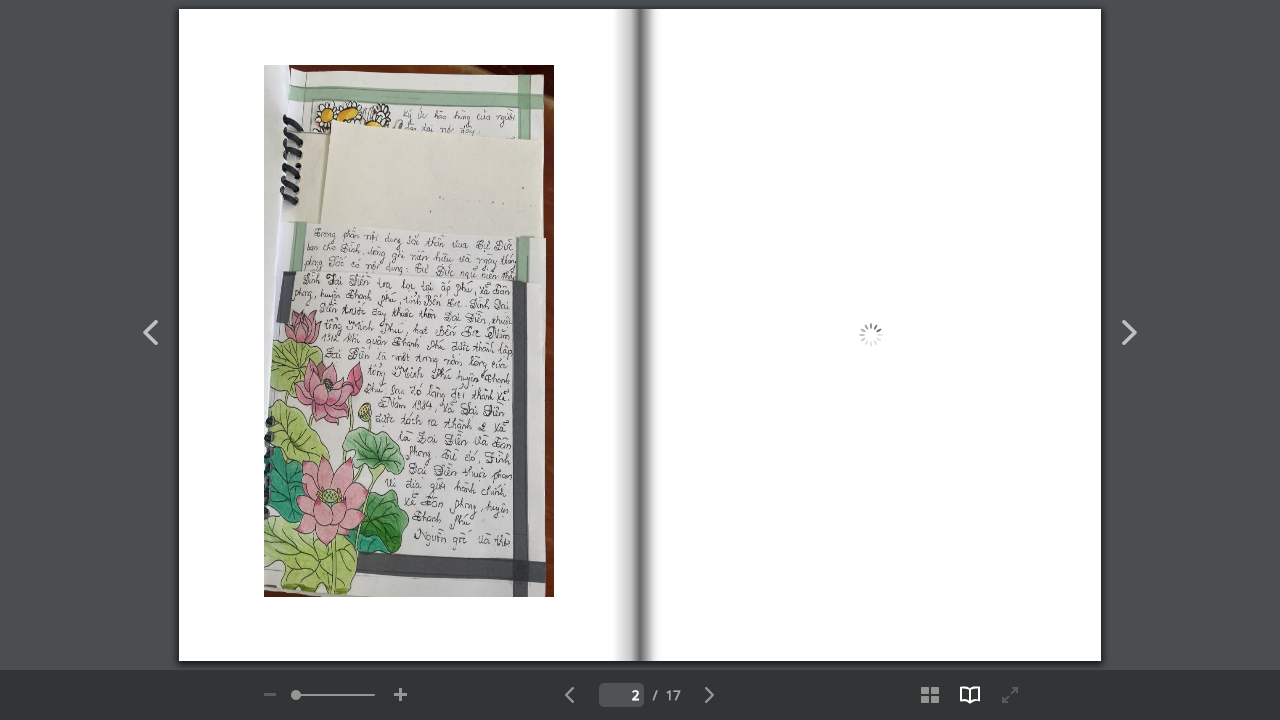 Ký ức hào hùng của người
dân tại nơi đây.
Trong phần nội dung Sắc thần vua Tự Đức
ban cho Đình, dòng ghi niên hiệu và ngày tháng
phong Sắc có nội dung: Tự Đức ngũ niên thập
Đình Đại Điền tọa lạc tại ấp Phú, xã Tân
phong, huyện Thạnh Phú, tỉnh Bến Tre. Đình Đại
Điền trước đây thuộc thôn Đại Điền, thuộc
tổng Minh Phú, hạt Bến Tre. Năm
1912 khi quận Thạnh Phú được thành lập,
Đại Điền là một trong năm làng của
tổng Minh Phú huyện Thạnh
Phú sau đó làng đổi thành xã.
Năm 1984, xã Đại Điền
được tách ra thành 2 xã
là Đại Điền và Tân
Phong. Từ đó, Đình
Đại Điền thuộc phạm
vi địa giới hành chính
xã Tân Phong, huyện
Thạnh Phú
Nguồn gốc và thời
2 / 17